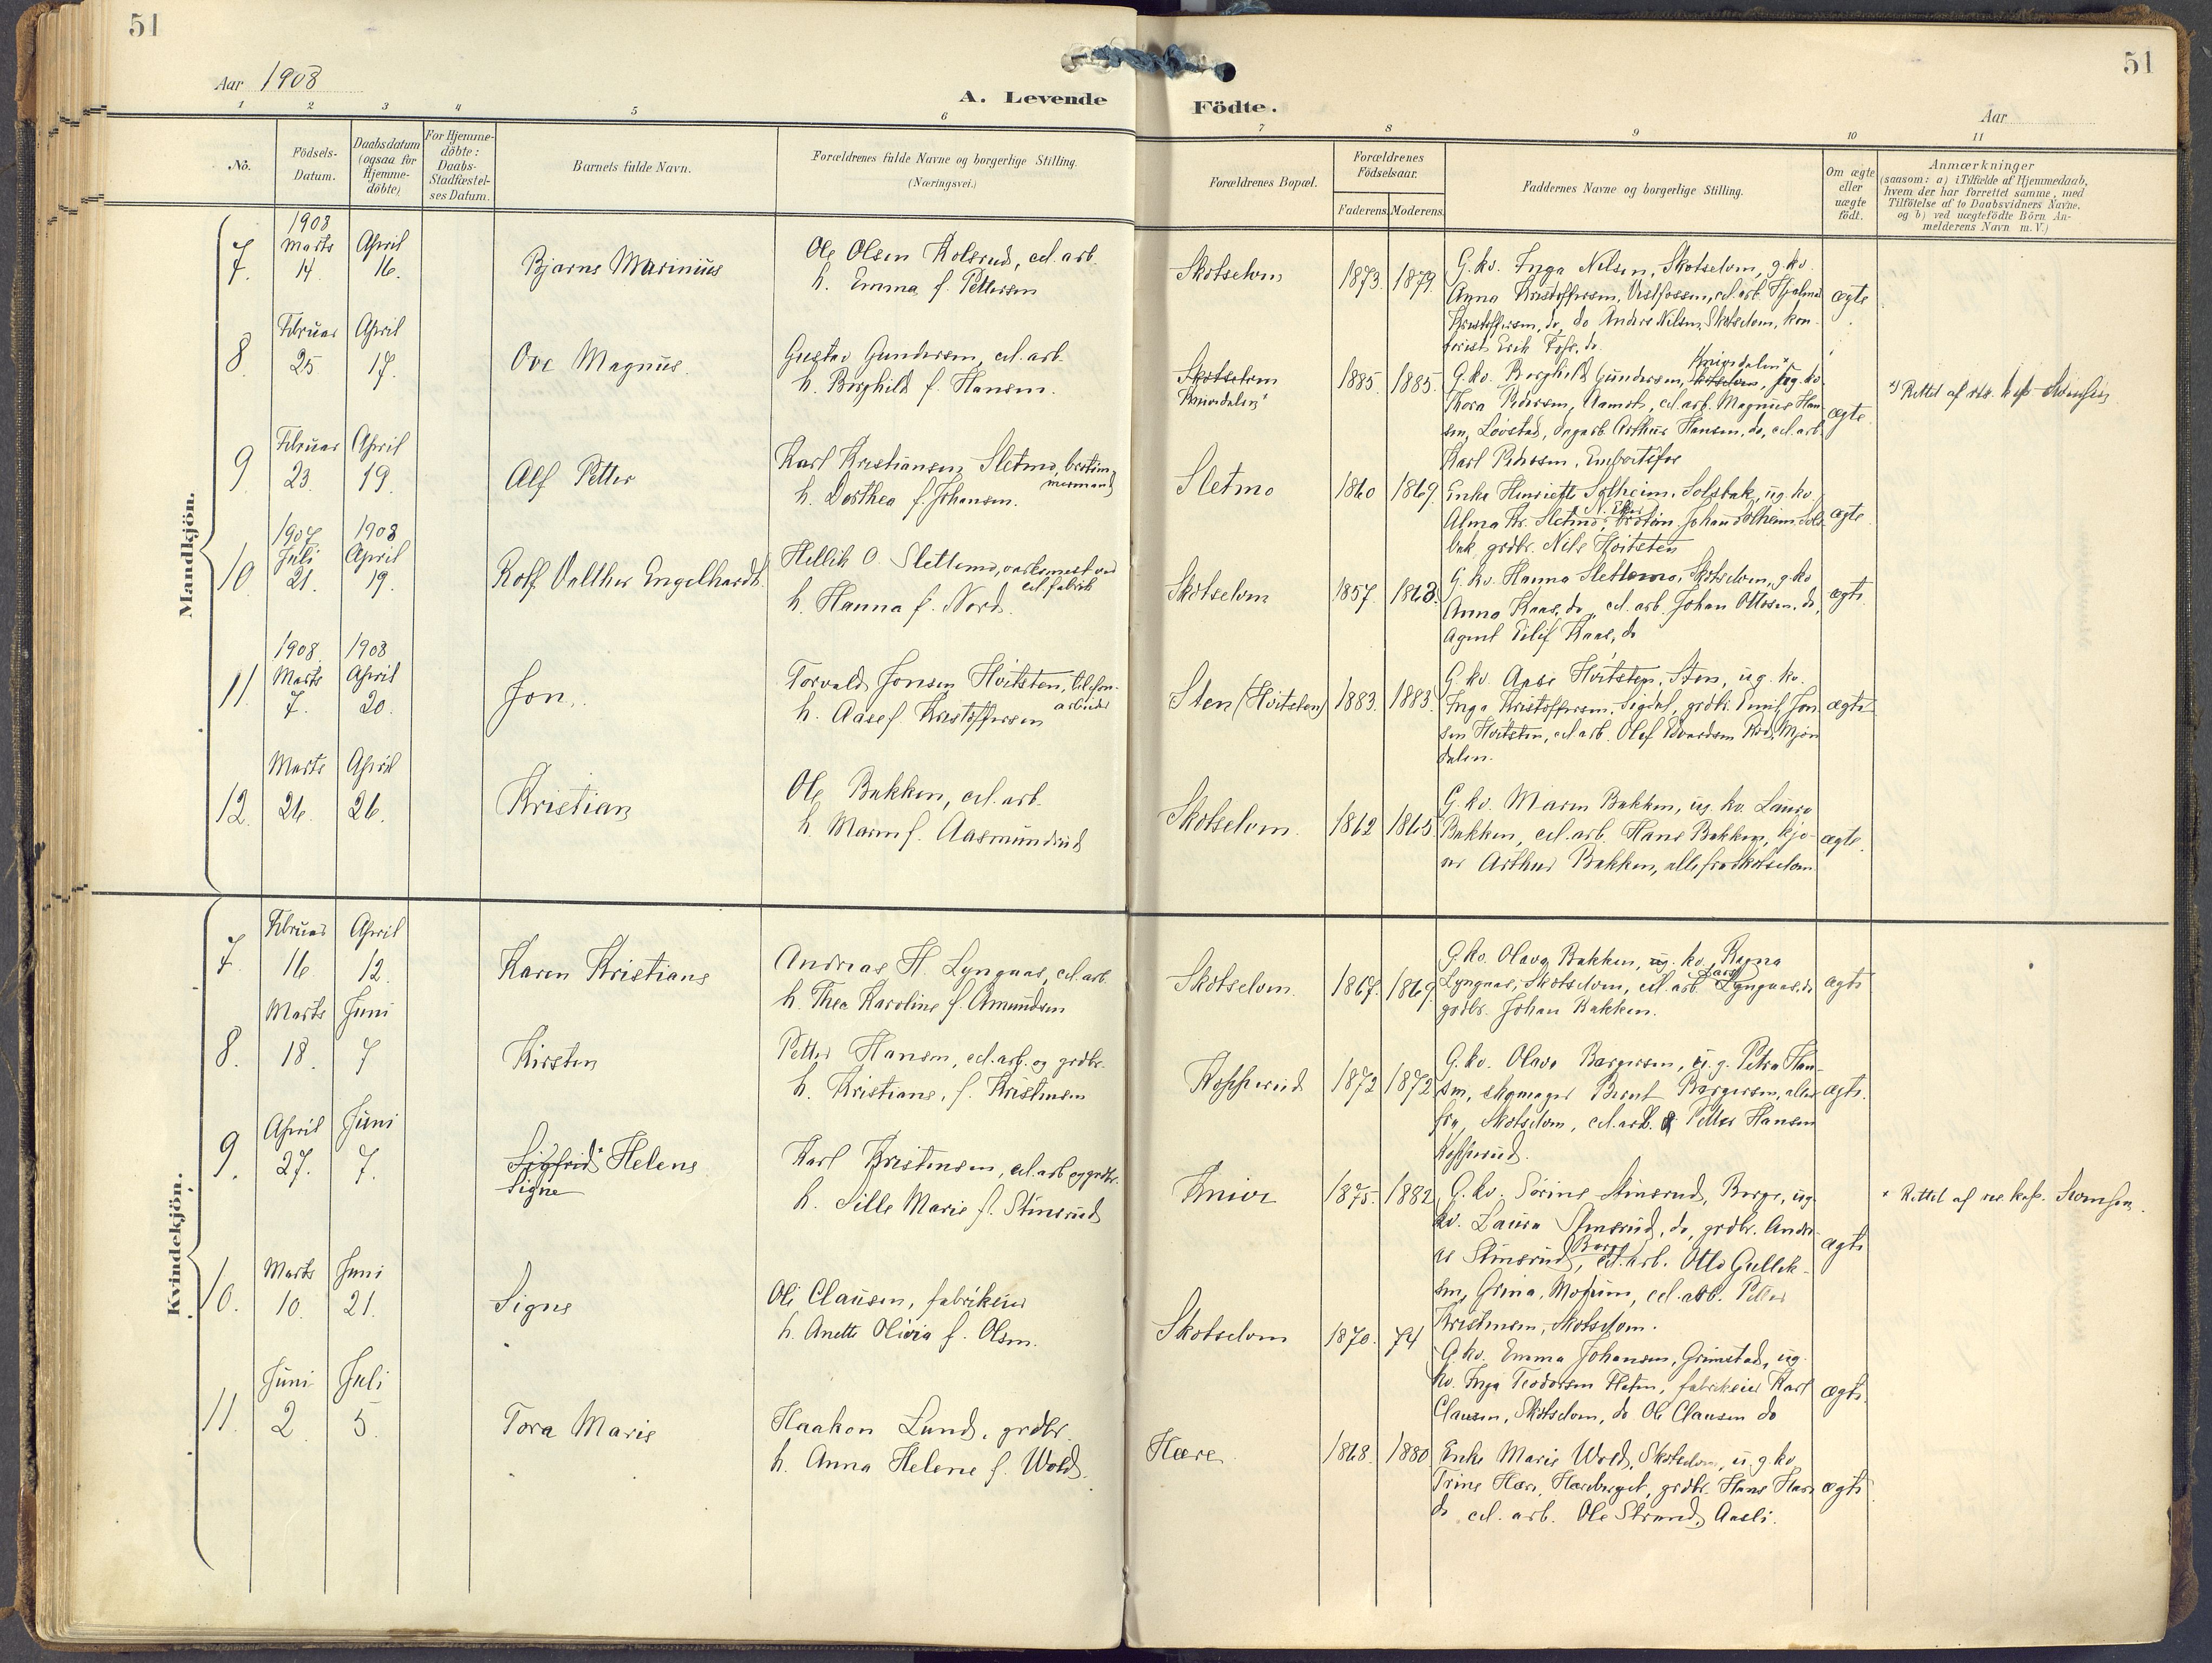 51
51
Aar 1908
A. Levende Födte.
Aar
1 2 3 4 5 6 7 8 9 10 11
No.
Födsels-Datum.
Daabsdatum (ogsaa for Hjemmedöbte)
For Hjemmedöbte: Daabs-Stadfæstelses Datum.
Barnets fulde Navn.
Forældrenes fulde Navne og borgerlige Stilling.
(Næringsvei.)
Forældrenes Bopæl.
Forældrenes Födselsaar.
Faderens. Moderens.
Faddernes Navne og borgerlige Stilling.
Om ægte eller uægte födt.
Anmærkninger
(saasom: a) i Tilfælde af Hjemmedaab,
hvem der har forrettet samme, med
Tilföielse af to Daabsvidners Navne.
og b) ved uægtefödte Börn An-
melderens Navn m.V.)
Mandkjön.
7. 1908 Marts 14. April 16. Bjarne Marinius
Ole Olsen Kolsrud, cel. arb.
h. Emma f. Pettersen
Skotselven 1873. 1879.
G. kv. Inga Nilsen, Skotselven, g. kv.
Anna Kristoffersen, Vestfossen, cel. arb. Hjalmar
Kristoffersen, do, do Anders Nilsen, Skotselven, kon-
torist Erik do.
ægte
8. Februar 25 April 17. Ove Magnus.
Gustav Gundersen, cel. arb.
h. Borghild f. Hansen.
Skotselven
Knivedalen*
1885. 1885.
Knivedalen*
G. kv. Borghild Gundersen, Skotselven, ug. kv.
Thora Pedersen, Aamot, cel. arb. Magnus Han-
sen, Lovstad, dagarb. Arthur Hansen, do, cel. arb.
Karl Pedersen, Embretsfos
ægte
*) Rettet af res. kap. Svensen
9. Februar 23. April 19. Alf Petter
Karl Kristiansen Sletmo, bortöm-
mermand
h. Dorthea f. Johansen.
Sletmo 1860 1869.
Enke Henriette Solheim, Solbak, ug. kv.
Alma Kr. Sletmo, N. Eker, Johan Solheim, Sol-
bak, grdbr. Nils Hvitsten
ægte
10. 1907 Juli 21. 1908 April 19. Rolf Valther Engelhardt.
Hellik O. Slettemo, verksmest. ved
cel. fabrik
h. Hanna f. Nord.
Skotselven 1857. 1863.
G. kv. Hanna Slettemo, Skotselven, g. kv.
Anna Kaas, do, cel. arb. Johan Ottosen, do,
agent Eilif Kaas, do
ægte
11. 1908 Marts 7. 1908 April 20. Jon.
Torvald Jonsen Hvitsten, telefon-
arbeider
h. Aase f. Kristoffersen
Sten (Hvitsten) 1883. 1883.
G. kv. Aase Hvitsten, Sten, ug. kv.
Inga Kristoffersen, Sigdal, grdbr. Emil Jon-
sen Hvitsten, cel. arb. Olaf Edvardsen Mjön-
dalen.
ægte
12. Marts 26. April 26. Kristian
Ole Bakken, cel. arb.
h. Maren f. Aasmundrud
Skotselven. 1862 1865
G. kv. Maren Bakken, ug. kv. Laura
Bakken, cel. arb. Hans Bakken, kjö-
rer Arthur Bakken, alle fra Skotselven
ægte.
Kvindekjön.
7. Februar 16 April 12. Karen Kristiane
Andreas H. Lyngaas, cel. arb.
h. Thea Karoline f. Amundsen
Skotselven. 1867. 1869.
G. kv. Olava Bakken, ug. kv. Ragna
Lyngaas, Skotselven, cel. arb. Lars Lyngaas, do
grdbr. Johan Bakken.
ægte
8. Marts 18. Juni 7 Kirsten
Petter Hansen, cel. arb. og grdbr.
h. Kristiane, f. Kristensen
Kopperud 1872 1872
G. kv. Olava Borgersen, ug. Petra Han-
sen, skomager Bernt Borgersen, alle
fra Skotselven, cel. arb. Petter Hansen
Kopperud.
ægte.
9. April 27. Juni 7. Sigfrid* Helene
Signe
Karl Kristensen, cel. arb. og grdbr.
h. Sille Marie f. Stensrud
Knive 1875. 1882
G. kv. Sörine Stensrud, Borge, ug.
kv. Laura Stensrud, do, grdbr. Andre-
as Stensrud, Borge, cel. arb. Otto Gullik-
sen, Grina, Modum, cel. arb. Petter
Kristensen, Skotselven.
ægte
* Rettet af res. kap. Svensen.
10. Marts 10. Juni 21. Signe
Ole Clausen, fabrikeier
h. Anette Olivia f. Olsen.
Skotselven 1870. 74
G. kv. Emma Johansen, Grimstad, ug.
kv. Inga Teodorsen Hafen, fabrikeier Karl
Clausen, Skotselven, do Ole Clausen do
ægte.
11. Juni 2 Juli 5. Tora Marie
Haakon Lund, grdbr.
h. Anna Helene f. Wold.
Hære. 1868. 1880
Enke Marie Wold, Skotselven, u. g. kv.
Trine Hære, Hæreberget, grdbr. Hans Hære
do cel. arb. Ole Strand, Aasli.
ægte